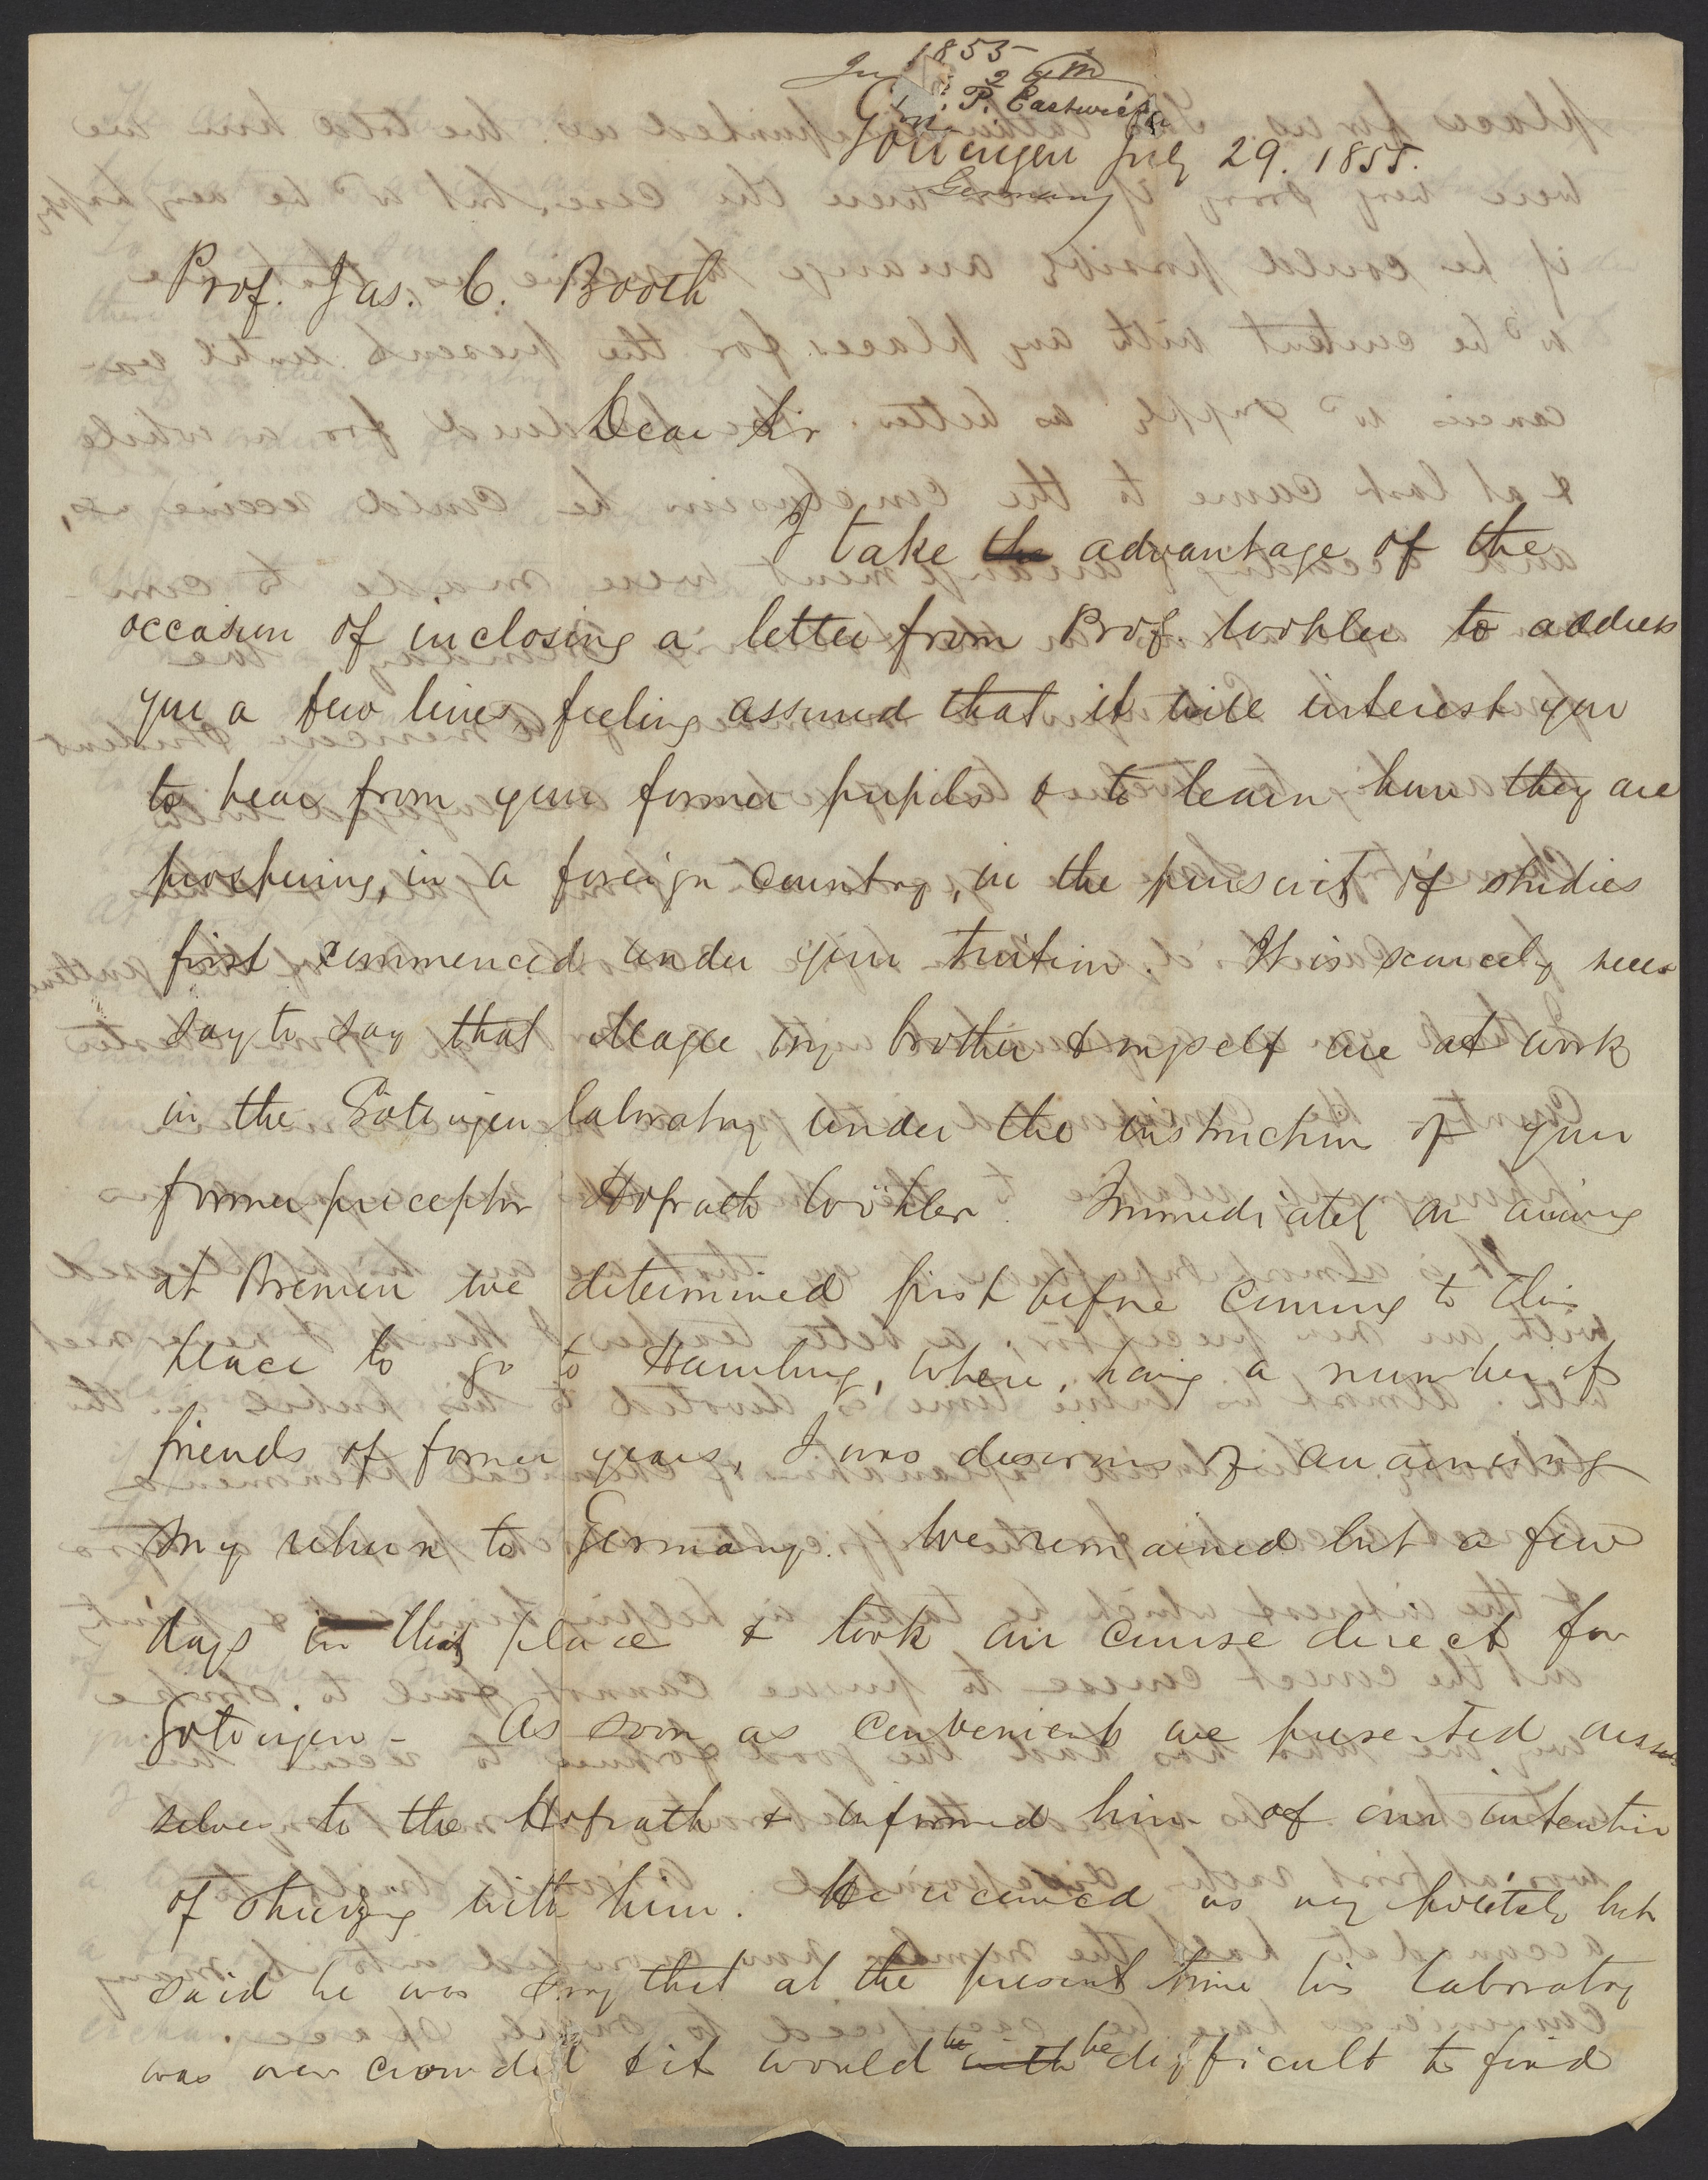 1855
2
P. Eastwick
Gottingen July 29. 1855.
Germany
Prof. Jas. C. Booth
Dear Sir
I take the advantage of the
occasion of inclosing a letter from Prof. Wohler to address
you a few lines, feeling assured that it will interest you
to hear from your former pupils & to learn how they are
prospering, in a foreign country, in the pursuit of studies
first commenced under your tuition. It is scarcely neces
sary to say that Magee my brother & myself are at work
in the Götingen laboratory under the instruction of your
former preceptor Hofrath Wöhler. Immediately on arriving
at Bremen we determined first before coming to this
place to go to Hamburg, where, having a number of
friends of former years, I was desirous of announcing
my return to Germany. We remained but a few
days in that place & took our course direct for
Gotingen - As soon as convenient we presented our
selves to the Hofrath & informed him of our intention
of studying with him. He received us very politely but
said he was sorry that at the present time his laboratory
was over crowded & it would be with be difficult to find